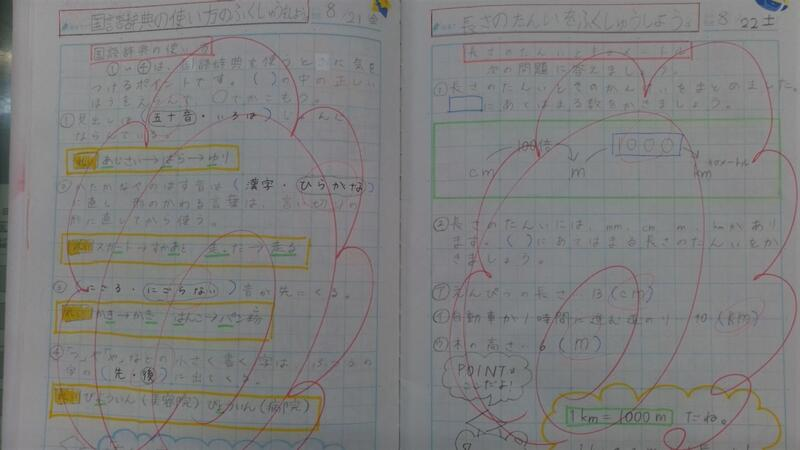 国語辞典の使い方のふくしゅうをしよう 8/21 金
国語辞典の使い方
①〜④は、国語辞典を使うときに気を
つけるポイントです。( )の中の正しい
ほうをえらんで ○でかこもう。
①見出しは(五十音・いろは)じゅんに
ならんでいる。
れい あじさい→ばら→ゆり
②かたかなののばす音は(漢字・ひらがな)
に直し 形のかわる言葉は、言い切りの
形に直してから使う。
れい スカート→すかあと 走った→走る
③(にごる・にごらない)音が先にくる。
れい かき→かぎ はんこ→パン
④「っ」や「ゃ」などの小さく書く字は、ふつうの
字の(先・後)に出てくる。
れい びよういん(美容院) びょういん(病院)
長さのたんいをふくしゅうしよう。 8/22 土
長さのたんいとキロメートル
次の問題に答えましょう。
①長さのたんいときのかんけいをまとめました。
□にあてはまる数をかきましょう。
100倍 1000
cm m km キロメートル
②長さのたんいには、mm、cm、m、kmがあり
ます。( )にあてはまる長さのたんいをか
きましょう。
⑦えんぴつの長さ…13(cm)
④自動車が1時間に進む道のり…40(km)
⑤木の高さ…6(m)
POINTは
ここだよ!
1km=1000m だね。